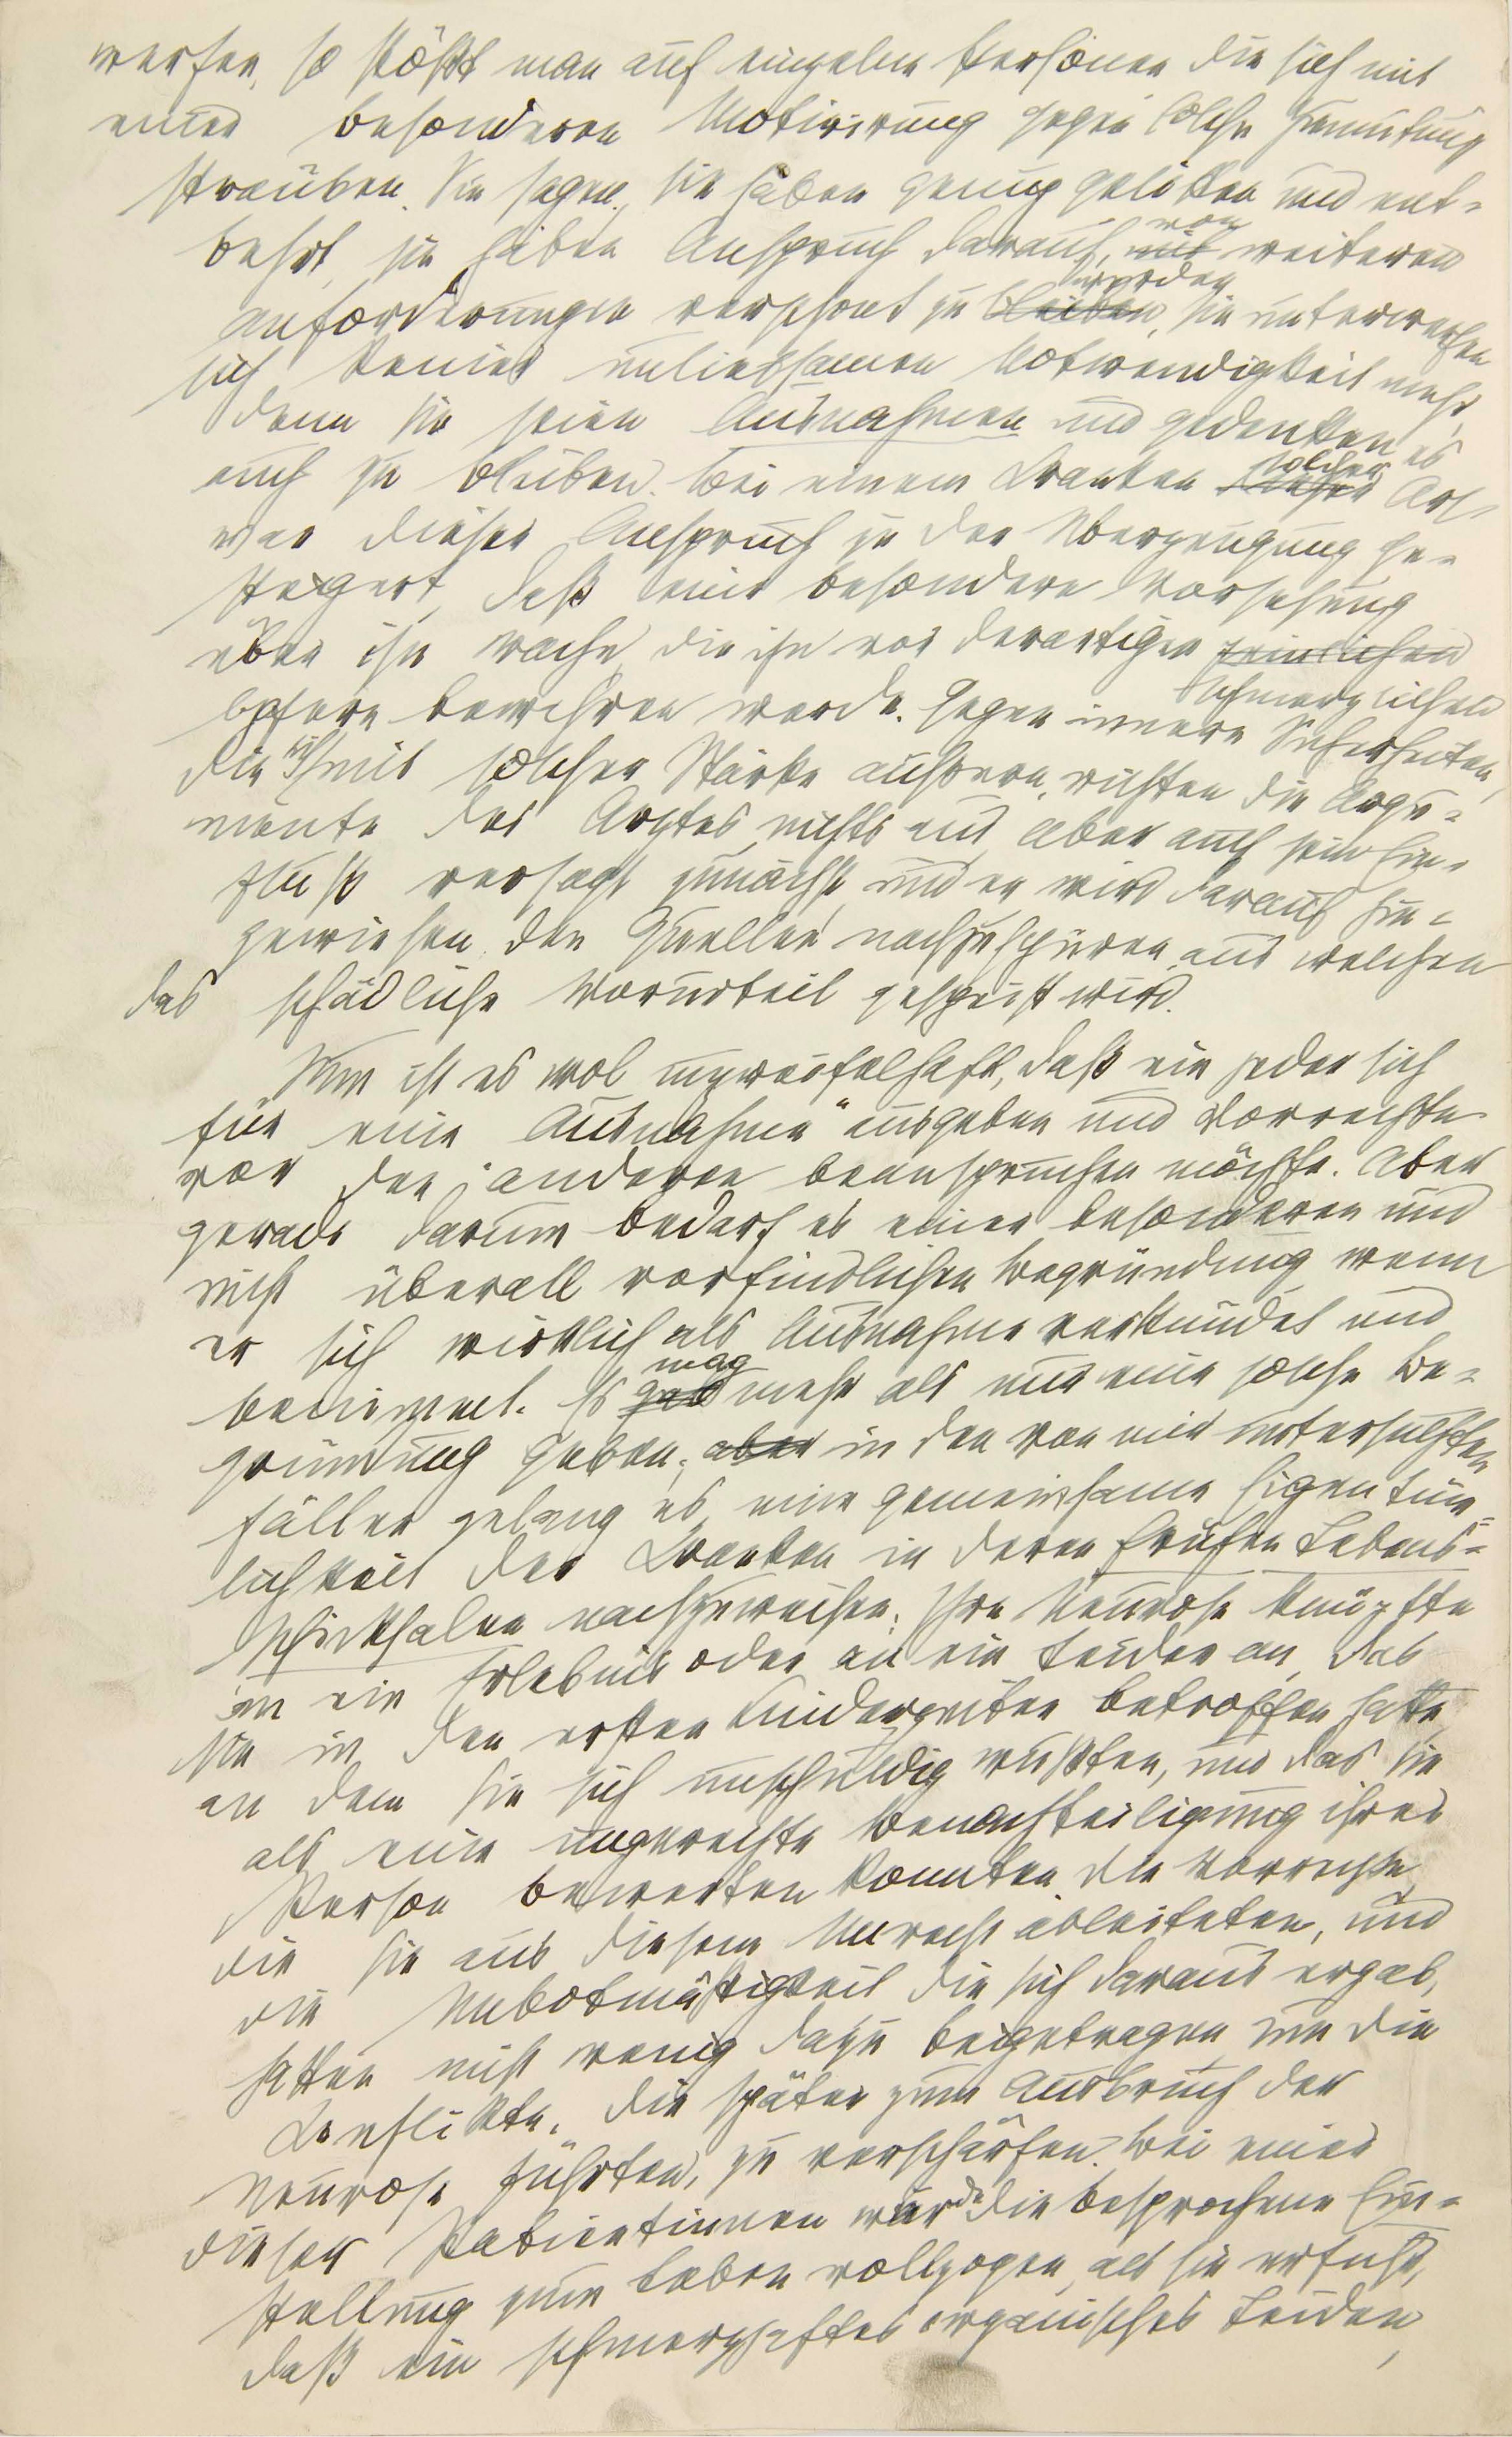 werfen, so stößt man auf einzelne Personen, die sich mit
einer besonderen Motivirung gegen solche Zumutung
sträuben. Sie sagen, sie haben genug gelitten und ent-
behrt, sie haben Anspruch darauf, mit von weiteren
Anforderungen verschont zu bleiben werden, sie unterwerfen
sich keiner unliebsamen Notwendigkeit mehr,
denn sie seien Ausnahmen und gedenken es
auch zu bleiben. Bei einem Kranken dieser solcher Art
war dieser Anspruch zu der Überzeugung ge-
steigert, daß eine besondere Vorsehung
über ihn wache, die ihn vor derartigen peinlichen
schmerzlichen
Opfern bewahren werde. Gegen innere Sicherheiten,
die sich mit solcher Stärke äußern, richten die Argu-
mente des Arztes nichts aus, aber auch sein Ein-
fluß versagt zunächst, und er wird darauf hin-
gewiesen, den Quellen nachzuspüren, aus welchen
das schädliche Vorurteil gespeist wird.
Nun ist es wol unzweifelhaft, daß ein jeder sich
für eine „Ausnahme" ausgeben und Vorrechte
vor den anderen beanspruchen möchte. Aber
gerade darum bedarf es einer besonderen und
nicht überall vorfindlichen Begründung, wenn
er sich wirklich als Ausnahme verkündet und
benimmt. Es gab mag mehr als nur eine solche Be-
gründung geben; aber in den von mir untersuchten
Fällen gelang es, eine gemeinsame Eigentüm-
lichkeit der Kranken in deren früheren Lebens-
schicksalen nachzuweisen: Ihre Neurose knüpfte
an ein Erlebnis oder an ein Leiden an, das
sie in den ersten Kinderzeiten betroffen hatte,
an dem sie sich unschuldig wußten, und das sie
als eine ungerechte Benachteiligung ihrer
Person bewerten konnten. Die Vorrechte,
die sie aus diesem Unrecht ableiteten, und
die Unbotmäßigkeit, die sich daraus ergab,
hatten nicht wenig dazu beigetragen, um die
Konflikte, die später zum Ausbruch der
Neurose führten, zu verschärfen. Bei einer
dieser Patientinnen wurde die besprochene Ein-
stellung zum Leben vollzogen, als sie erfuhr,
daß ein schmerzhaftes organisches Leiden,